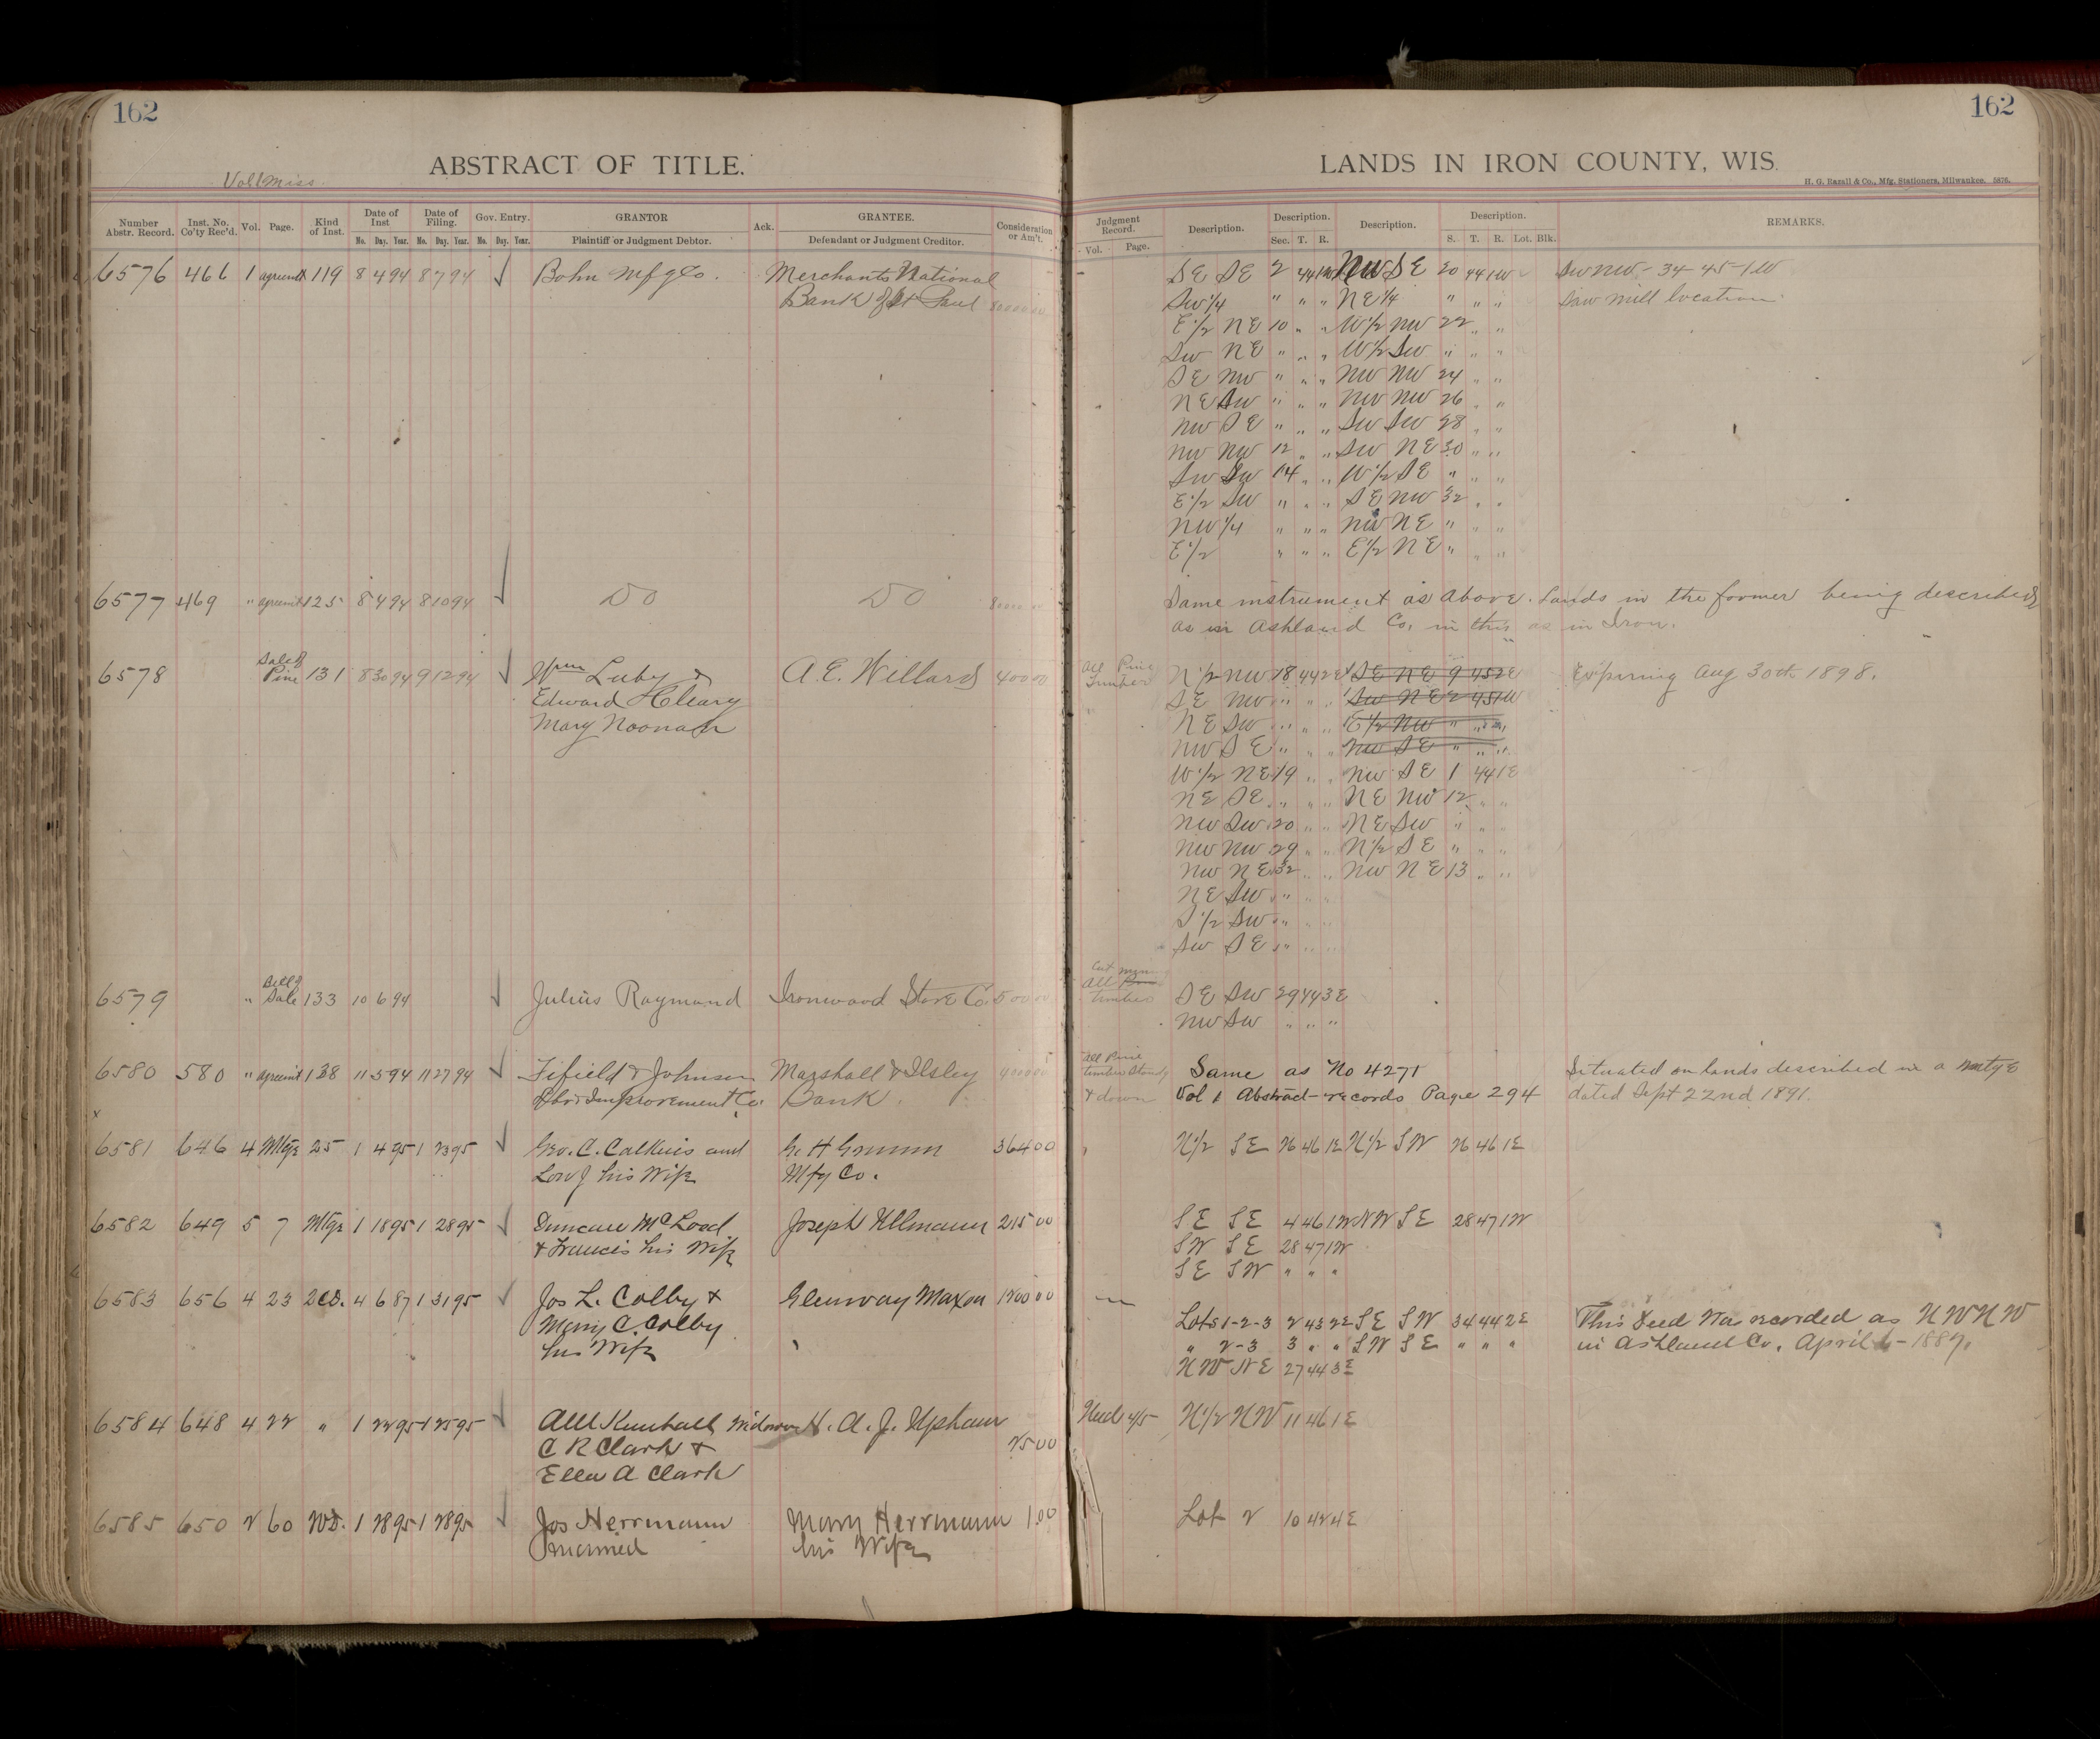 162
162
ABSTRACT OF TITLE.
LANDS IN IRON COUNTY, WIS.
Vol 1 Miss.
H. G. Razall & Co., Mfg. Stationers, Milwaukee. 5876.
Number Abstr. Record. Inst. No. Co'ty Rec'd. Vol. Page. Kind of Inst. Date of Inst Mo. Day. Year. Date of Filing. Mo. Day. Year. Gov. Entry. Mo. Day. Year. GRANTOR Plaintiff or Judgment Debtor. Ack. GRANTEE. Defendant or Judgment Creditor. Consideration or Am't.
Judgment Record. Vol. Page. Description. Description. Sec. T. R. Description. Description. S. T. R. Lot. Blk. REMARKS.
6576 466 1 agreemt 119 8 4 94 8 7 94 ✓ Bohn Mfg Co. Merchants National
Bank of St Paul 80000 00
SE SE 2 44 1W NW SE 20 44 1W SW NW - 34 - 45 - 1W
SW 1/4 " " " NE 1/4 " " " Saw mill location.
E 1/2 NE 10 " " W 1/2 NW 22 " "
SW NE " " " W 1/2 SW " " "
SE NW " " " NW NW 24 " "
NE SW " " " NW NW 26 " "
NW SE " " " SW SW 28 " "
NW NW 12 " " SW NE 30 " "
SW SW 14 " " W 1/2 SE " " "
E 1/2 SW " " " SE NW 32 " "
NW 1/4 " " " NW NE " " "
E 1/2 " " " E 1/2 NE " " "
6577 469 " agreemt 125 8 4 94 8 10 94 ✓ DO DO 80000 00
Same instrument as above. Lands in the former being described
as in Ashland Co. in this as in Iron.
6578 Sale of Pine 131 8 30 94 9 12 94 ✓ Wm Luby & A. E. Willard 400 00
Edward Hleary
Mary Noonan
All Pine Timber N 1/2 NW 18 44 2E SE NE 9 45 2E Expiring Aug 30th 1898.
SE NW " " " SW NE 2 45 1W
NE SW " " " E 1/2 NW " " "
NW SE " " " NW SE " " "
W 1/2 NE 19 " " NW SE 1 44 1E
NE SE " " " NE NW 12 " "
NW SW 20 " " NE SW " " "
NW NW 29 " " N 1/2 SE " " "
NW NE 32 " " NW NE 13 " "
NE SW " " "
S 1/2 SW " " "
SW SE " " "
6579 " Bill of Sale 133 10 6 94 ✓ Julius Raymond Ironwood Store Co. 500 00
All timber SE SW 29 44 3E
NW SW " " "
6580 580 " agreemt 138 11 5 94 11 27 94 ✓ Fifield & Johnson Marshall & Ilsley
Improvement Co. Bank.
All Pine timber standg & down Same as No 4271 Situated on lands described in a mtge
Vol 1 Abstract records Page 294 dated Sept 22nd 1891.
6581 646 4 Mtge 25 1 4 95 1 23 95 ✓ Geo. C. Calkins and G. H. Grimm 364 00
Lou J his Wife Mfg Co.
N 1/2 SE 26 46 1E N 1/2 SW 26 46 1E
6582 649 5 7 Mtge 1 18 95 1 28 95 ✓ Duncan McLood Joseph Ullmann 215 00
& Francis his Wife
SE SE 4 46 1W NW SE 28 47 1W
SW SE 28 47 1W
SE SW " " "
6583 656 4 23 2CD. 4 6 87 1 31 95 ✓ Jos L. Colby & Glenway Maxon 1200 00
Mary C. Colby
his Wife
Lots 1-2-3 2 43 2E SE SW 34 44 2E This Deed Was recorded as NWNW
" 2-3 3 " " SW SE " " " in Ashland Co. April 6 - 1887.
NW NE 27 44 3E
6584 648 4 22 " 1 22 95 1 25 95 ✓ Kimball Widower H. A. J. Upham
C R Clark & 25 00
Ella A. Clark
Und 4/5 N 1/2 NW 11 46 1E
6585 650 2 60 WD. 1 28 95 1 28 95 ✓ Jos Herrmann Mary Herrmann 1.00
married his Wife
Lot 2 10 42 4E